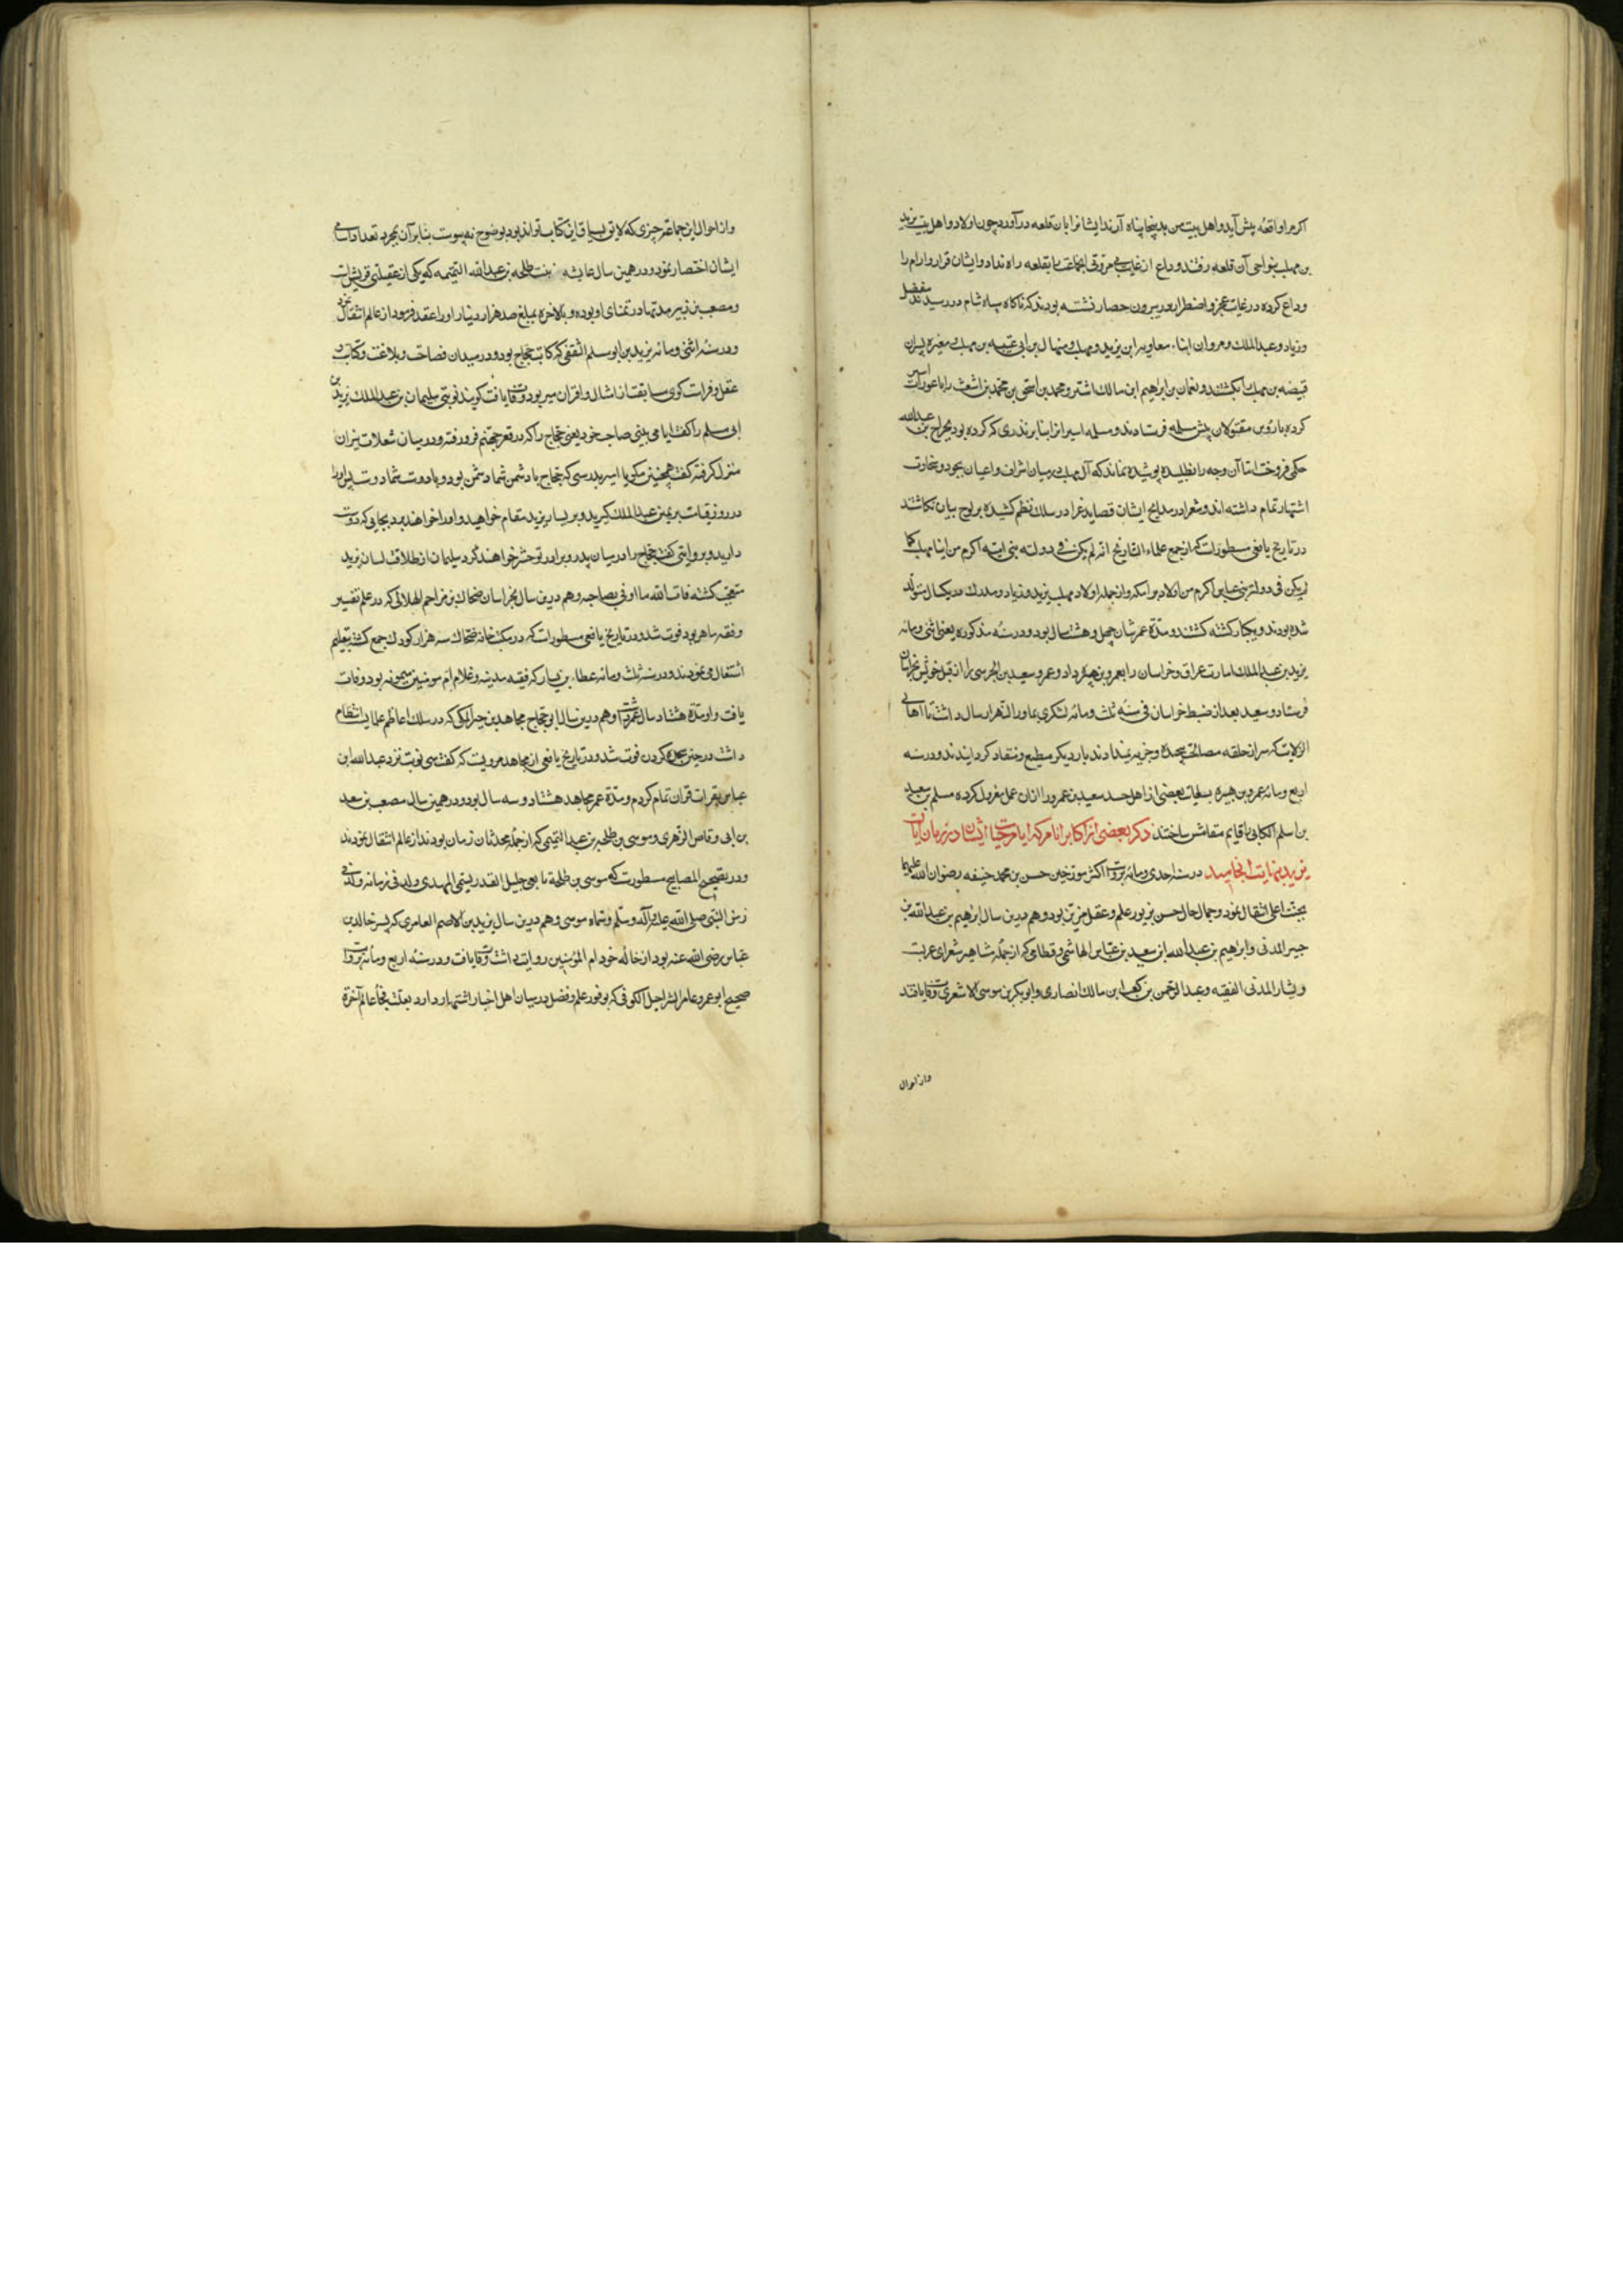 اکر مرا واقعهٔ پیش آید و اهل بیت من بدینجا پناه آرند ایشانرا بان قلعه درآورد چون اولاد و اهل بیت یزید
بن مهلب بنواحی آن قلعه رفتند وداع از غایت بی مروتی انجماعت را بقلعه راه نداد و ایشان قرار و آرام را
وداع کرده در غایت عجز و اضطرار بعد بیرون حصار نشسته بودند که ناکاه سپاه شام در رسیدند مفضل
و زیاد و عبدالملک و مروان ابناء معاویه ابن یزید و مهلب و منهال بن ابی عتیبه بن مهلب مغیره پسران
قبیضه بن مهلب بکشتند و نعمان بن ابراهیم ابن مالک اشتر و محمد بن اسحق بن محمد بن اشعث را با عورات اسیر
کرده با رؤس مقتولان پیش مسلمه فرستادند و مسلمه اسیرانرا بنابر نذری که کرده بود بجراح بن عبدالله
حکمی فروخت اما آن وجه را نطلبیده پوشیده نماند که آل مهلب در میان اشراف و اعیان بجود و سخاوت
اشتهار تمام داشته اند و شعرا در مدایح ایشان قصاید غرا در سلک نظم کشیده بر لوح بیان نکاشتند
در تاریخ یافعی مسطورست که اجمع علماء التاریخ انه لم یکن فی دولة بنی امیه اکرم من ابنا مهلب کما
لم یکن فی دولة بنی عباس اکرم من اولاد برامکه و از جمله اولاد مهلب یزید و زیاد و مدرک در یکسال متولد
شده بودند و بیکبار کشته کشتند و مدة عمرشان چهل و هشت سال بود و در سنهٔ مذکوره یعنی اثنی و مائه
یزید بن عبدالملک امارت عراق و خراسان را بعمرو بن هبیره داد و عمرو سعید بن الحرسی را از قبل خویش بخراسان
فرستاد و سعید بعد از ضبط خراسان فی سنه ثلث و مائه لشکری بماورالنهر ارسال داشت تا اهالی
انولایت که سر از حلقه مصالحت پیچیده و جزیه نمیدادند بار دیکر مطیع و منقاد کردانیدند و در سنه
اربع و مائه عمرو بن هبیره بسعایت بعضی از اهل حسد سعید بن عمرو را ازان عمل معزول کرده مسلم بن سعید
بن اسلم الکلابی را قایم مقامش ساختند ذکر بعضی از اکابر انام که ایام حیات ایشان در زمان ایالت
یزید بنهایت انجامید در سنه احدی و مائه بروایت اکثر مورخین حسن بن محمد حنیفه رضوان الله علیهما
بجنت اعلی انتقال نمود و جمال حال حسن بزیور علم و عقل مزین بود و هم درین سال ابراهیم بن عبدالله بن
جبیر المدنی و ابراهیم بن عبدالله ابن سعید بن عباس الهاشمی و قطامی که از جمله مشاهیر شعرای عربست
و بشار المدنی الفقیه و عبدالرحمن بن کعب ابن مالک انصاری و ابوبکر بن موسی الاشعری وفات یافتند
واز احوال
واز احوال این جماعة چیزی که لایق بسیاق این کتاب تواند بود بوضوح نه پیوست بنابر آن بمجرد تعداد اسامی
ایشان اختصار نمود و در همین سال عایشه بنت طلحه بن عبدالله التیمیه که یکی از عقیلتی قریش است
و مصعب بن زبیر مدتها در تمنای او بوده و بالاخره بمبلغ صد هزار دینار او را عقد فرمود از عالم انتقال نمود
و در سنه اثنی و مائه یزید بن ابو سلم الثقفی که کاتب حجاج بود و در میدان فصاحت و بلاغت و کتابت و
عقل و فراست کوی سابقت از امثال و اقران میربود وفات یافت کویند نوبتی سلیمان بن عبدالملک یزید بن
ابی مسلم را کفت ایا می بینی صاحب خود یعنی حجاج را که در قعر جهنم فرو رفته و در میان شعلات نیران
منزل کرفته کفت همچنین مکو یا امیر بدرستی که حجاج با دشمن شما دشمن بود و با دوست شما دوست پس او را
در روز قیامت بر یمین عبدالملک کیرید و بر یسار یزید مقام خواهید و او را خواهند برد بجایی که دوست
دارید و بروایتی کفت حجاج را در میان پدر و برادر تو حشر خواهند کرد سلیمان از طلاقت لسان یزید
متعجب کشته قاتله الله ما اوفی بصاحبه و هم درین سال بخراسان ضحاک بن مزاحم الهلالی که در علم تفسیر
و فقه ماهر بود فوت شد و در تاریخ یافعی مسطورست که در مکتب خانهٔ ضحاک سه هزار کودک جمع کشته بتعلیم
اشتغال می نمودند و در سنه ثلث و مائه عطاء بن یسار که فقیه مدینه و غلام ام مومنین میمونه بود وفات
یافت و او مدة هشتاد سال عمر داشت و هم درین سال ابو حجاج مجاهد بن جبر المکی که در سلک اعاظم علما انتظام
داشت در حین سجده کردن فوت شد و در تاریخ یافعی از مجاهد مرویست که کفت سی نوبت نزد عبدالله ابن
عباس بقرات قران تمام کردم و مدة عمر مجاهد هشتاد و سه سال بود و در همین سال مصعب بن سعد
بن ابی وقاص الزهری و موسی بن طلحه بن عبدا التیمی که از جمله محدثان زمان بودند از عالم انتقال نمودند
و در تصحیح المصابیح مسطورست که موسی بن طلحة تابعی جلیل القدر یسمی المهدی ولد فی زمانه ولد فی
زمن النبی صلی الله علیه و آله وسلم و سماه موسی و هم درین سال یزید بن الاصم العامری که پسر خاله ابن
عباس رضی الله عنه بود از خاله خود ام المؤمنین روایت داشت وفات یافت و در سنهٔ اربع و مائه بروایت
صحیح ابو عمرو عامر الشراحیل الکوفی که بوفور علم و فضل در میان اهل اخبار اشتهار دارد بعلت فجأ عالم آخرة